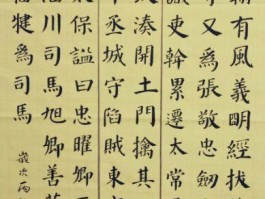 翰有風義明經拔
才又為張敬忠劍
識吏幹累遷太常
湊開土門擒其
丞城守陷賊東
保謚曰忠曜卿
川司馬旭卿善
犍為司馬
歲次丙